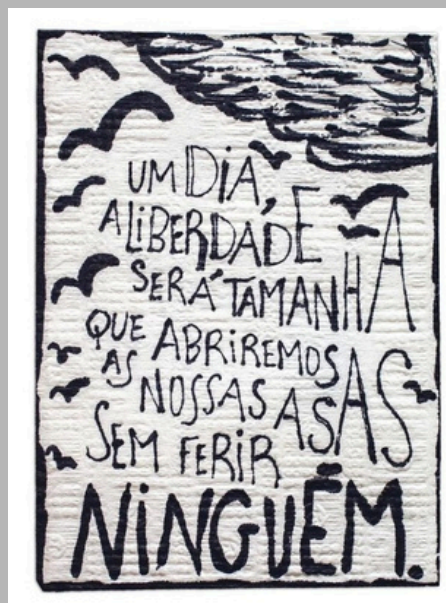 UM DIA,
A LIBERDADE
SERÁ TAMANHA
QUE ABRIREMOS
AS NOSSAS ASAS
SEM FERIR
NINGUÉM.